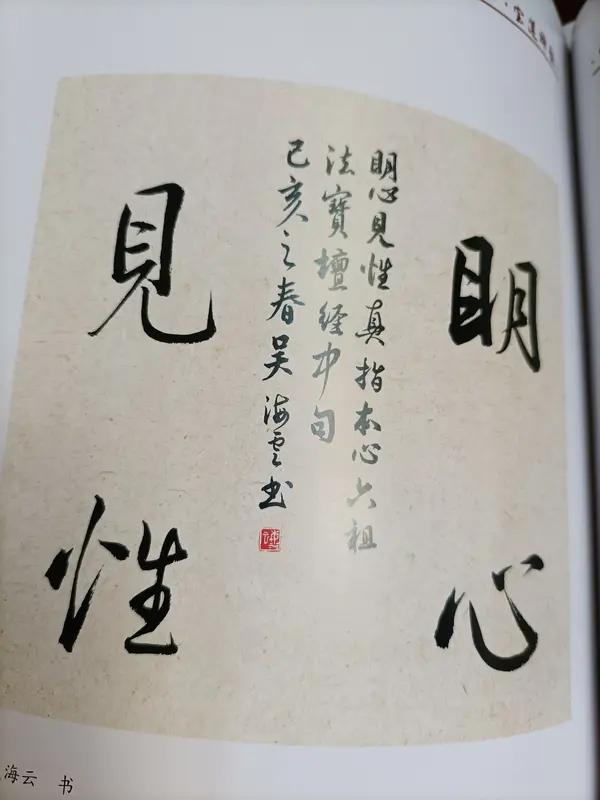 明心
見性
明心見性真指本心六祖
法寶壇经中句
己亥之春吴海雲书
海云 书